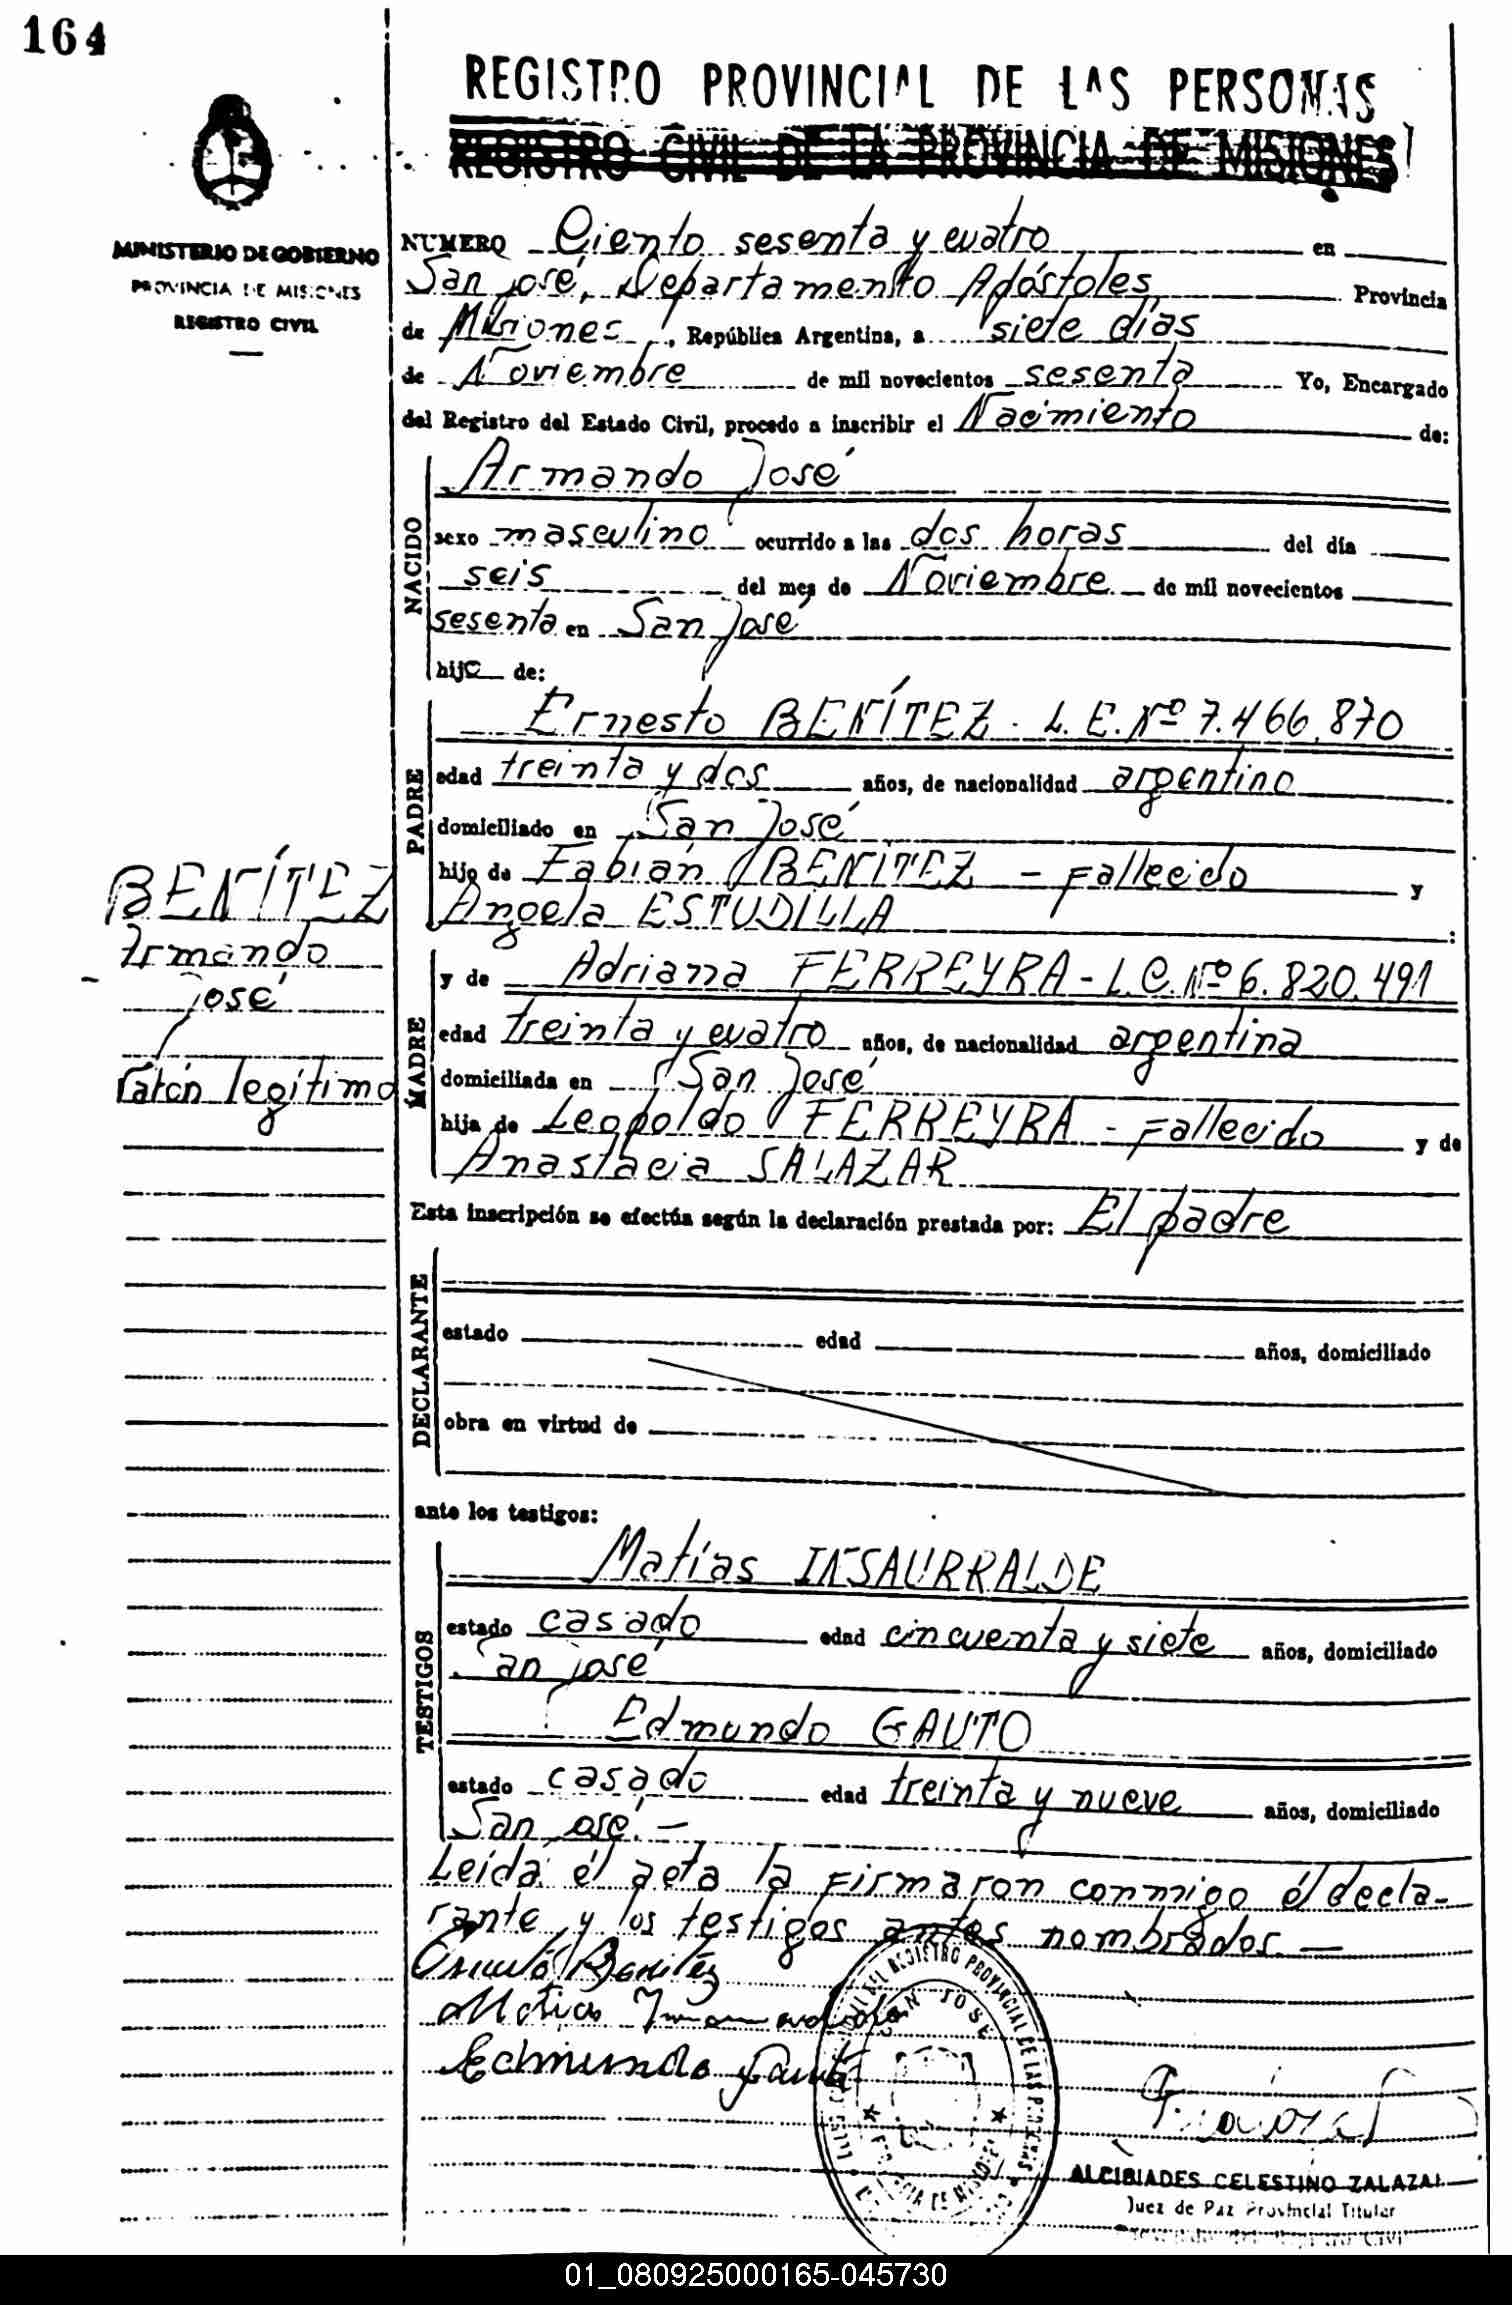 164
REGISTRO PROVINCIAL DE LAS PERSONAS
REGISTRO CIVIL DE LA PROVINCIA DE MISIONES
MINISTERIO DE GOBIERNO
PROVINCIA DE MISIONES
REGISTRO CIVIL
NUMERO Ciento sesenta y cuatro en
San José, Departamento Apóstoles, Provincia
de Misiones, República Argentina, a siete días
de Noviembre de mil novecientos sesenta Yo, Encargado
del Registro del Estado Civil, procedo a inscribir el Nacimiento de:
NACIDO
Armando José
sexo masculino ocurrido a las dos horas del día
seis del mes de Noviembre de mil novecientos
sesenta en San José
hijo de:
PADRE
Ernesto BENÍTEZ - L.E. Nº 7.466.870
edad treinta y dos años, de nacionalidad argentino
domiciliado en San José
hijo de Fabián BENITEZ - Fallecido y
Angela ESTUDILLA :
BENÍTEZ
Armando
José
Varón legítimo
MADRE
y de Adriana FERREYRA - L.C. Nº 6.820.491
edad treinta y cuatro años, de nacionalidad argentina
domiciliada en San José
hija de Leopoldo FERREYRA - Fallecido y de
Anastacia SALAZAR
Esta inscripción se efectúa según la declaración prestada por: El padre
DECLARANTE
estado edad años, domiciliado
obra en virtud de
ante los testigos:
TESTIGOS
Matías INSAURRALDE
estado casado edad cincuenta y siete años, domiciliado
San José
Edmundo GAUTO
estado casado edad treinta y nueve años, domiciliado
San José. -
Leída él acta la firmaron conmigo él decla-
rante y los testigos antes nombrados. -
Benítez
Matías
Edmundo Gauto
REGISTRO PROVINCIAL DE LAS
SAN JOSE
PROVINCIA DE MISIONES
ALCIBIADES CELESTINO ZALAZAR
Juez de Paz Provincial Titular
01_080925000165-045730